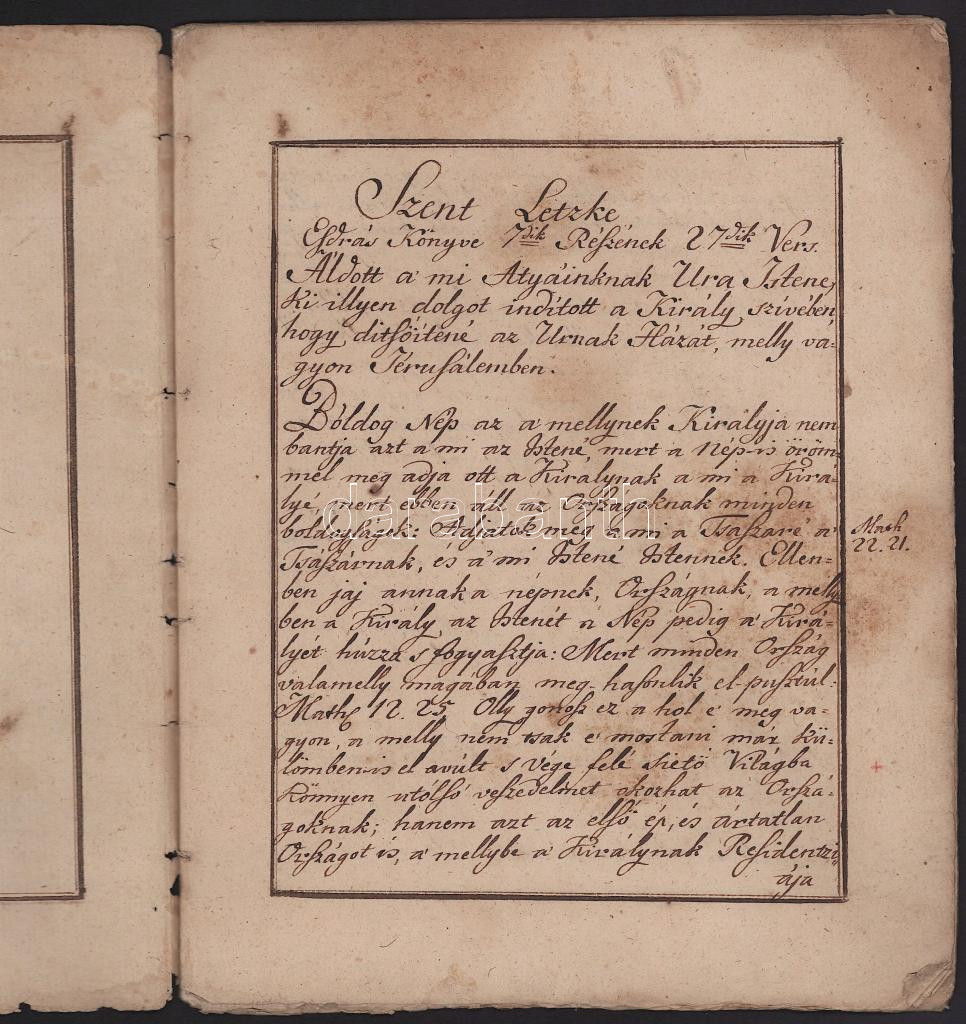 Szent Letzke
Esdrás Könyve 7dik Részének 27dik Vers.
Áldott a' mi Atyáinknak Ura Istene,
ki illyen dolgot indított a Király szívében
hogy ditsőítené az Urnak Házát, melly va-
gyon Jérusálemben.
Bóldog Nép az a mellynek Királyja nem
bantja azt a mi az Istené, mert a Nép-is öröm-
mel meg adja ott a Királynak a mi a Kirá-
lyé, mert ebben áll az Országoknak minden
boldogságok: Adjátok meg a mi a Tsaszaré a'
Tsaszárnak, és a' mi Istené Istennek. Ellen-
ben jaj annak a népnek, Országnak, a melly-
ben a Király az Istenét a Nép pedig a' Kirá-
lyét húzza s fogyasztja: Mert minden Ország
valamelly magában meg-hasonlik el-pusztúl:
Math 12. 25 Olly gonosz ez a hol e' meg va-
gyon, a melly nem tsak e' mostani már kü-
lömben-is el avúlt s vége felé siető Világba
könnyen utólsó veszedelmet okozhat az Orszá-
goknak; hanem azt az első ép, és ártatlan
Országot is, a' mellybe a' Királynak Residentzi-
ája
Math
22. 21.
darabanth